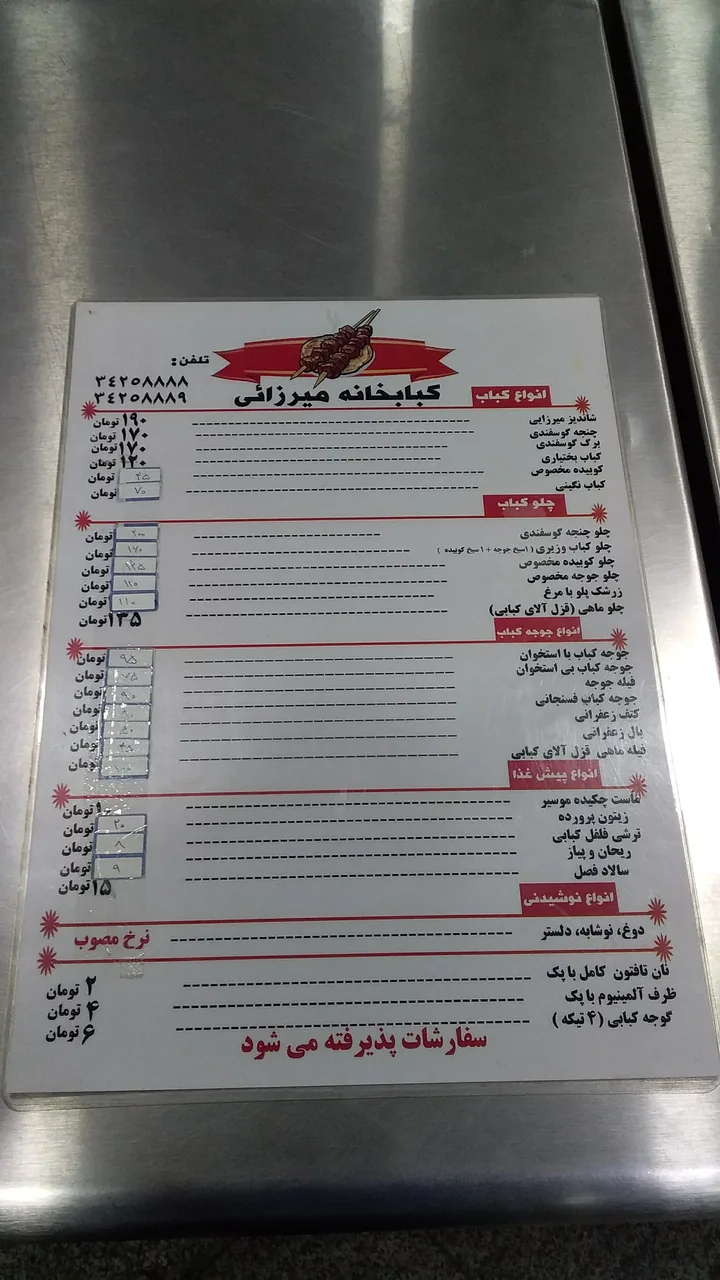 تلفن:
۳۴۲۵۸۸۸۸
۳۴۲۵۸۸۸۹
کبابخانه میرزائی
انواع کباب
شاندیز میرزایی ۱۹۰ تومان
چنجه گوسفندی ۱۷۰ تومان
برگ گوسفندی ۱۷۰ تومان
کباب بختیاری ۱۲۰ تومان
کوبیده مخصوص ۴۵ تومان
کباب نگینی ۷۰ تومان
چلو کباب
چلو چنجه گوسفندی ۲۰۰ تومان
چلو کباب وزیری (۱سیخ جوجه + ۱سیخ کوبیده) ۱۷۰ تومان
چلو کوبیده مخصوص ۱۲۵ تومان
چلو جوجه مخصوص تومان
زرشک پلو با مرغ ۱۱۰ تومان
چلو ماهی (قزل آلای کبابی) ۱۳۵ تومان
انواع جوجه کباب
جوجه کباب با استخوان ۹۵ تومان
جوجه کباب بی استخوان ۷۵ تومان
فیله جوجه ۹۰ تومان
جوجه کباب فسنجانی تومان
کتف زعفرانی تومان
بال زعفرانی تومان
فیله ماهی قزل آلای کبابی تومان
انواع پیش غذا
ماست چکیده موسیر تومان
زیتون پرورده ۲۰ تومان
ترشی فلفل کبابی ۸ تومان
ریحان و پیاز ۹ تومان
سالاد فصل ۱۵ تومان
انواع نوشیدنی
دوغ، نوشابه، دلستر نرخ مصوب
نان تافتون کامل با پک ۲ تومان
ظرف آلمینیوم با پک ۴ تومان
گوجه کبابی (۴ تیکه) ۶ تومان
سفارشات پذیرفته می شود